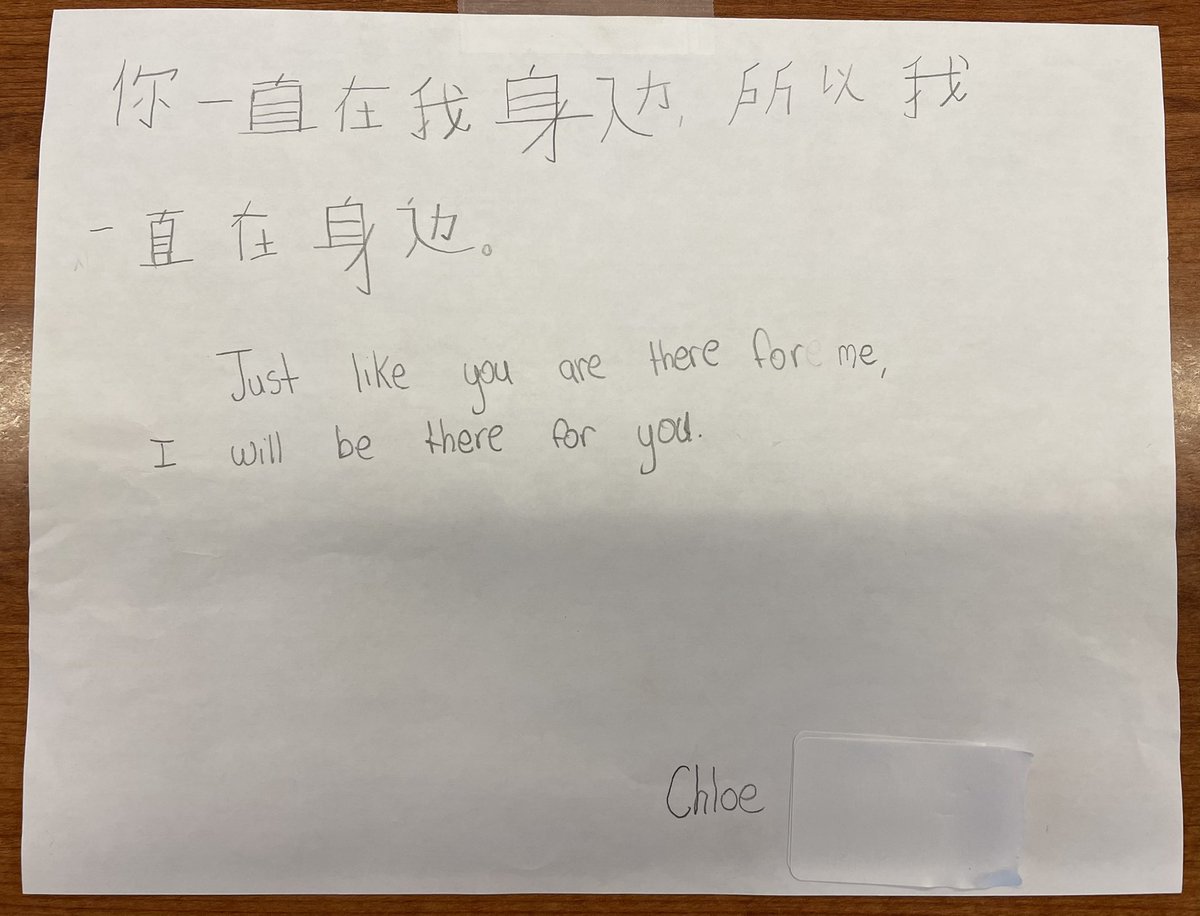 你一直在我身边，所以我
一直在身边。
Just like you are there for me,
I will be there for you.
Chloe